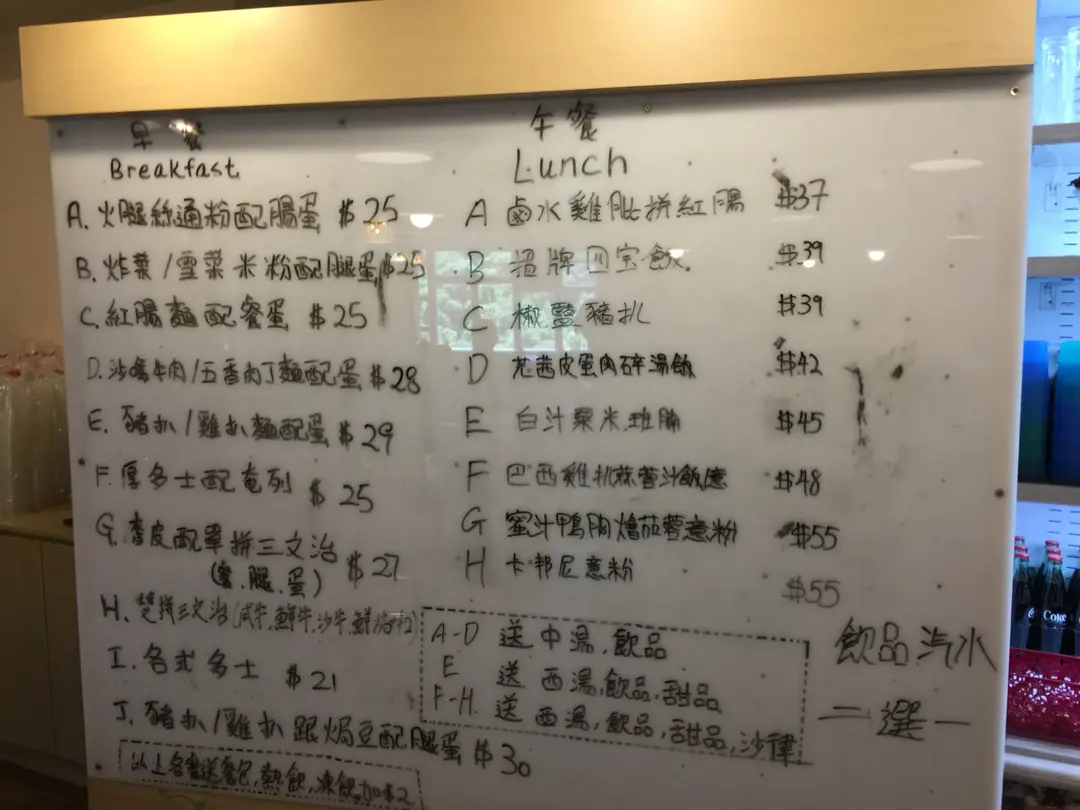 早餐
Breakfast
A. 火腿絲通粉配腸蛋 $25
B. 炸菜/雪菜米粉配腿蛋 $25
C. 紅腸麵配餐蛋 $25
D. 沙嗲牛肉/五香肉丁麵配蛋 $28
E. 豬扒/雞扒麵配蛋 $29
F. 厚多士配奄列 $25
G. 配單拼三文治 $27
(餐.腿.蛋)
H. 雙拼三文治(咸牛,鮮牛,沙牛,鮮
I. 各式多士 $21
J. 豬扒/雞扒跟焗豆配腿蛋 $30
以上各餐送餐包,熱飲,凍飲加$2
午餐
Lunch
A 鹵水雞肶拼紅腸 $37
B 招牌回宝飯 $39
C 椒鹽豬扒 $39
D 芫茜皮蛋肉碎湯飯 $42
E 白汁粟米班腩 $45
F 巴西雞扒蒜蓉汁飯意 $48
G 蜜汁鴨胸燴茄蓉意粉 $55
H 卡邦尼意粉 $55
A-D 送中湯,飲品
E 送西湯,飲品,甜品
F-H. 送西湯,飲品,甜品,沙律
飲品汽水
二選一
Coke